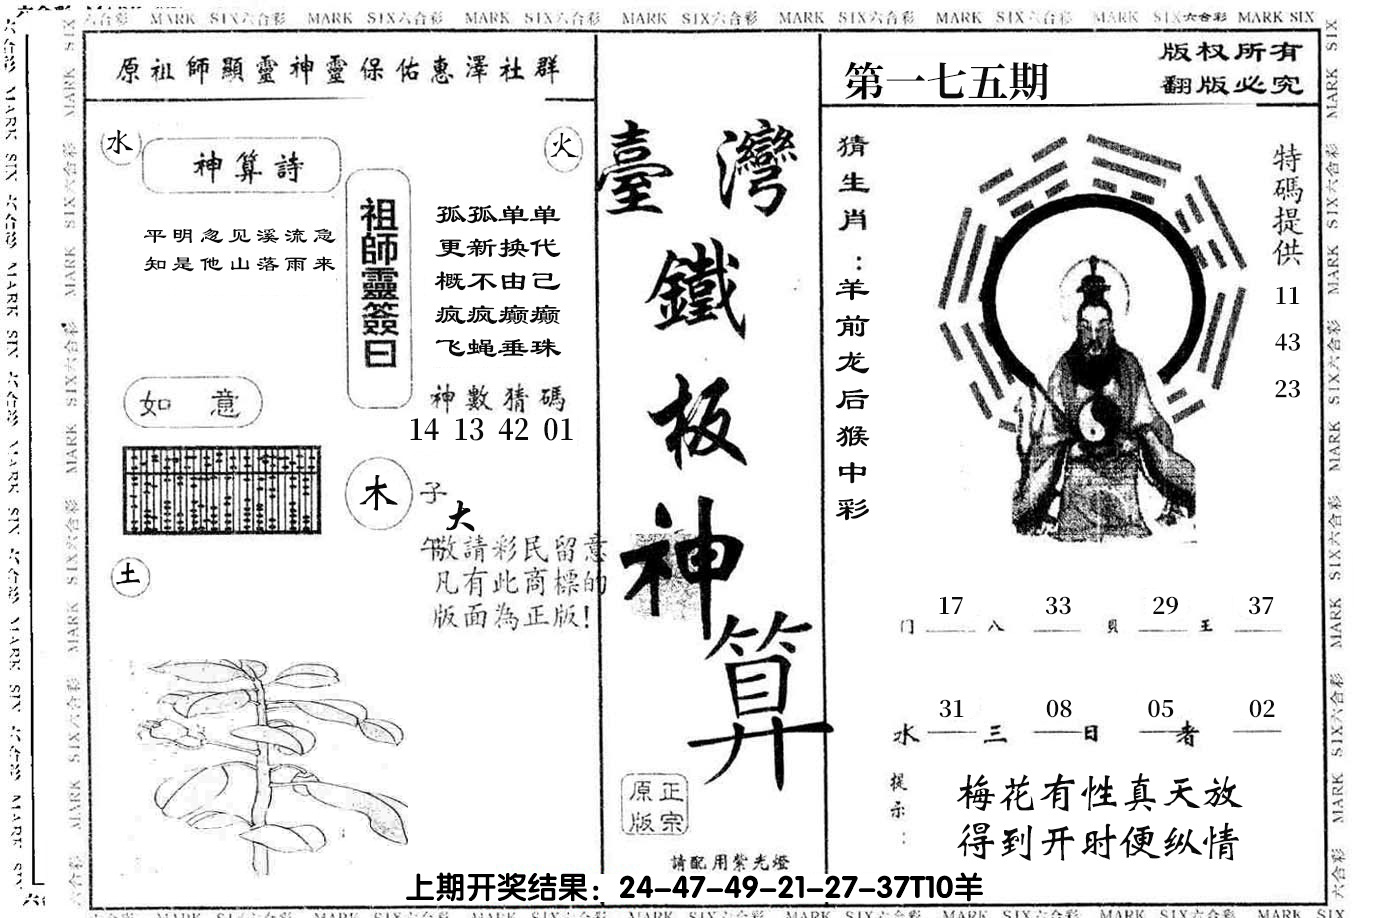 MARK SIX六合彩 MARK SIX六合彩 MARK SIX六合彩 MARK SIX六合彩 MARK SIX六合彩 MARK SIX六合彩 MARK SIX六合彩 MARK SIX
原祖師顯靈神靈保佑惠澤社群
水
神算詩
火
平明忽见溪流急
知是他山落雨来
祖師靈簽曰
孤孤单单
更新换代
概不由己
疯疯癫癫
飞蝇垂珠
如意
神數猜碼
14 13 42 01
木
子
大
午
敬請彩民留意
凡有此商標的
版面為正版!
土
臺灣
鐵
板
神
算
正宗
原版
請配用紫光燈
第一七五期
版权所有
翻版必究
猜生肖:羊前龙后猴中彩
特碼提供
11
43
23
17 33 29 37
门 八 貝 王
31 08 05 02
水 三 日 者
提示:
梅花有性真天放
得到开时便纵情
上期开奖结果：24-47-49-21-27-37T10羊